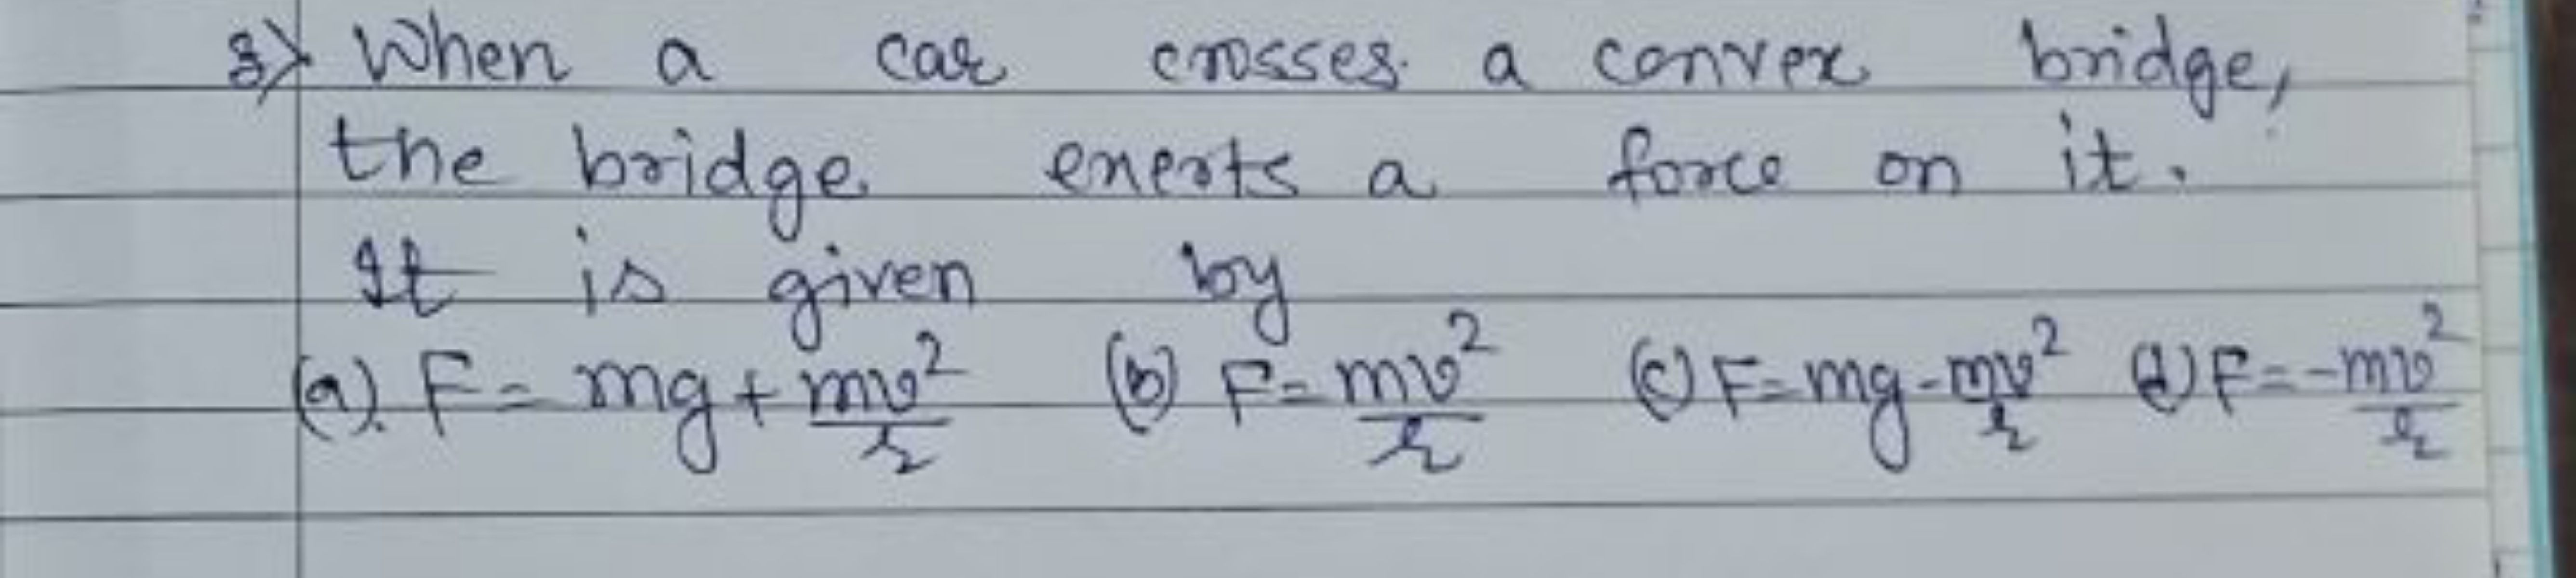 3) When a car crosses a convex bridge,
the bridge exerts a force on it.
It is given by
(a). F = mg + mv²/r (b) F = mv²/r (c) F = mg - mv²/r (d) F = -mv²/r